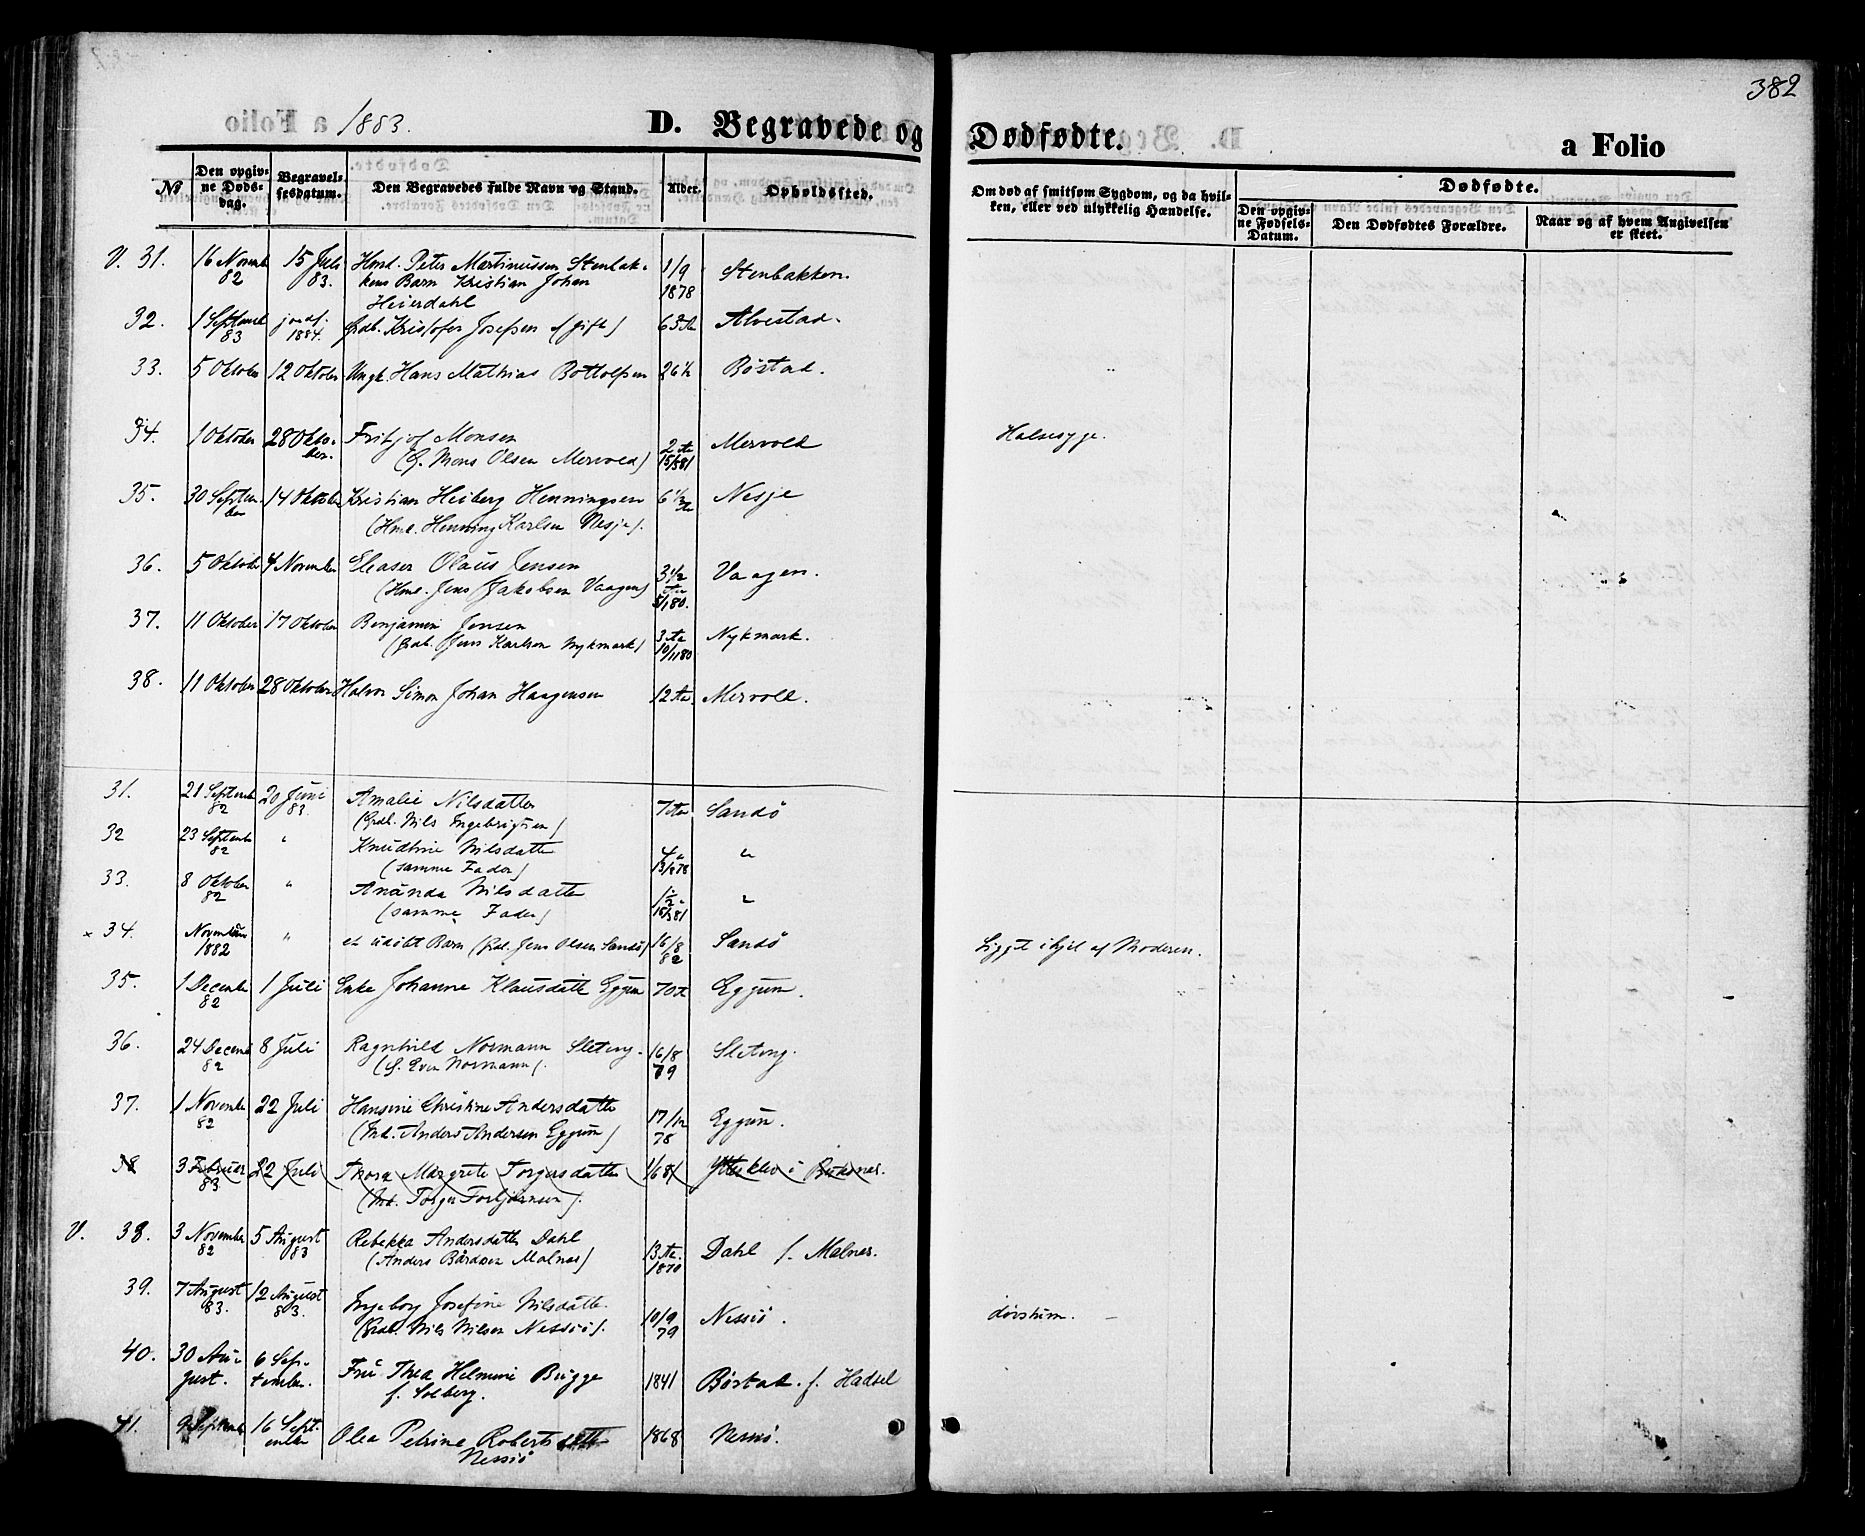 382
1883.
D. Begravede og Dødfødte.
a Folio
No
Den opgivne Dødsdag.
Begravelsesdatum.
Den Begravedes fulde Navn og Stand.
Alder.
Opholdssted.
Om død af smitsom Sygdom, og da hvilken, eller ved ulykkelig Hændelse.
Dødfødte.
Den opgivne Fødsels-Datum.
Den Dødfødtes Forældre.
Naar og af hvem Angivelsen er skeet.
V. 31. 16 Novemb 82 15 Juli 83. Hmd. Peter Martinussen Stenbakkens Barn Kristian Johan Heierdahl 1/9 1878 Stenbakken.
32. 1 Septemb 83 jordf. 1884. Grdb. Kristofer Josefsen (gift) Alvestad.
33. 5 Oktober 12 Oktober Ungk. Hans Mathias Bottolfsen 26 ½ Bøstad.
34. 1 Oktober 28 Oktober. Fritjof Monsen
(G. Mons Olsen Mervold) 2 Aar 15/3 81 Mervold Halssyge.
35. 30 September 14 Oktober Kristian Heiberg Henningsen 6 ½ Nesje
(Hmd. Henning Karlsen Nesje).
36. 5 Oktober 4 November Eleaser Olaus Jensen 3 ½ Vaagen.
(Hmd. Jens Jakobsen Vaagen)
37. 11 Oktober 17 Oktober Benjamin Jensen
(Grdb. Jens Karlsen Nykmark) 3 Aar 10/11 80 Nykmark.
38. 11 Oktober 28 Oktober Halvor Simon Johan Haagensen 12 Aar. Mervold.
31. 21 September 82 20 Juni 83. Amalie Nilsdatter
(Grdb. Nils Ingebrigtsen) 7 Aar Sandö
32 23 September 82 " Knudtine Nilsdatter
(samme Fader) 4 " "
33. 8 Oktober 82 " Ananda Nilsdatter
(samme Fader) 1 ½ " 15/3 81 "
x 34. November 1882 " et udöbt Barn (Grdb. Jens Olsen Sandö) 16/8 82 Sandö Ligget ihjel af Moderen.
35. 1 December 82 1 Juli Enke Johanne Klausdatter Eggum 70 Aar Eggum.
36. 24 Decemb 82 8 Juli Ragnhild Normann Sleteng. 16/8 79 Sleteng.
(S. Even Normann).
37. 1 November 82 22 Juli Hansine Christine Andersdatter
(Ind. Anders Andersen Eggum) 17/12 78 Eggum.
38 3 Februar 83 22 Juli Thora Margrete Torgersdatter 1/6 81 i Buksnes.
(Ind. Torger Torbjörnsen).
V. 38. 3 November 82 5 August 83 Rebekka Andersdatter Dahl
(Anders Bårdsen Malnes) 13 Aar. 1870 Dahl f. Malnes.
39. 7 August 83. 12 August 83. Ingeborg Josefine Nilsdatter
(Grdb. Nils Nilsen Nessiö). 10/9 79 Nessiö.
40. 30 August. 6 September. Fru Thea Helmine Brügge
f. Solberg. 1841 Bøstad. f. Hadsel
41. 9 September 16 September Olea Petrine Robertsdatter
Nessiö 1868 Nessiö.